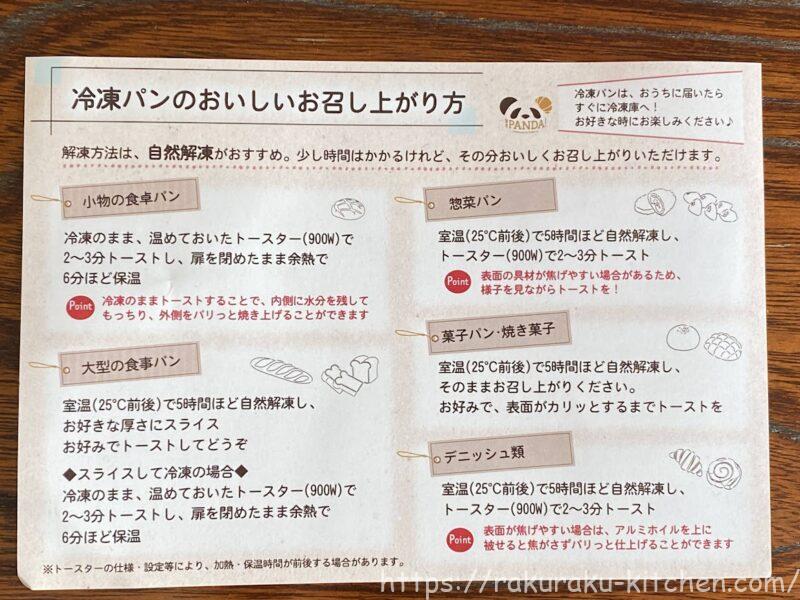 冷凍パンのおいしいお召し上がり方
PANDA
冷凍パンは、おうちに届いたら
すぐに冷凍庫へ!
お好きな時にお楽しみください♪
解凍方法は、自然解凍がおすすめ。少し時間はかかるけれど、その分おいしくお召し上がりいただけます。
小物の食卓パン
冷凍のまま、温めておいたトースター(900W)で
2〜3分トーストし、扉を閉めたまま余熱で
6分ほど保温
Point
冷凍のままトーストすることで、内側に水分を残して
もっちり、外側をパリっと焼き上げることができます
大型の食事パン
室温(25℃前後)で5時間ほど自然解凍し、
お好きな厚さにスライス
お好みでトーストしてどうぞ
◆スライスして冷凍の場合◆
冷凍のまま、温めておいたトースター(900W)で
2〜3分トーストし、扉を閉めたまま余熱で
6分ほど保温
惣菜パン
室温(25℃前後)で5時間ほど自然解凍し、
トースター(900W)で2〜3分トースト
Point
表面の具材が焦げやすい場合があるため、
様子を見ながらトーストを!
菓子パン・焼き菓子
室温(25℃前後)で5時間ほど自然解凍し、
そのままお召し上がりください。
お好みで、表面がカリッとするまでトーストを
デニッシュ類
室温(25℃前後)で5時間ほど自然解凍し、
トースター(900W)で2〜3分トースト
Point
表面が焦げやすい場合は、アルミホイルを上に
被せると焦がさずパリっと仕上げることができます
※トースターの仕様・設定等により、加熱・保温時間が前後する場合があります。
https://rakuraku-kitchen.com/